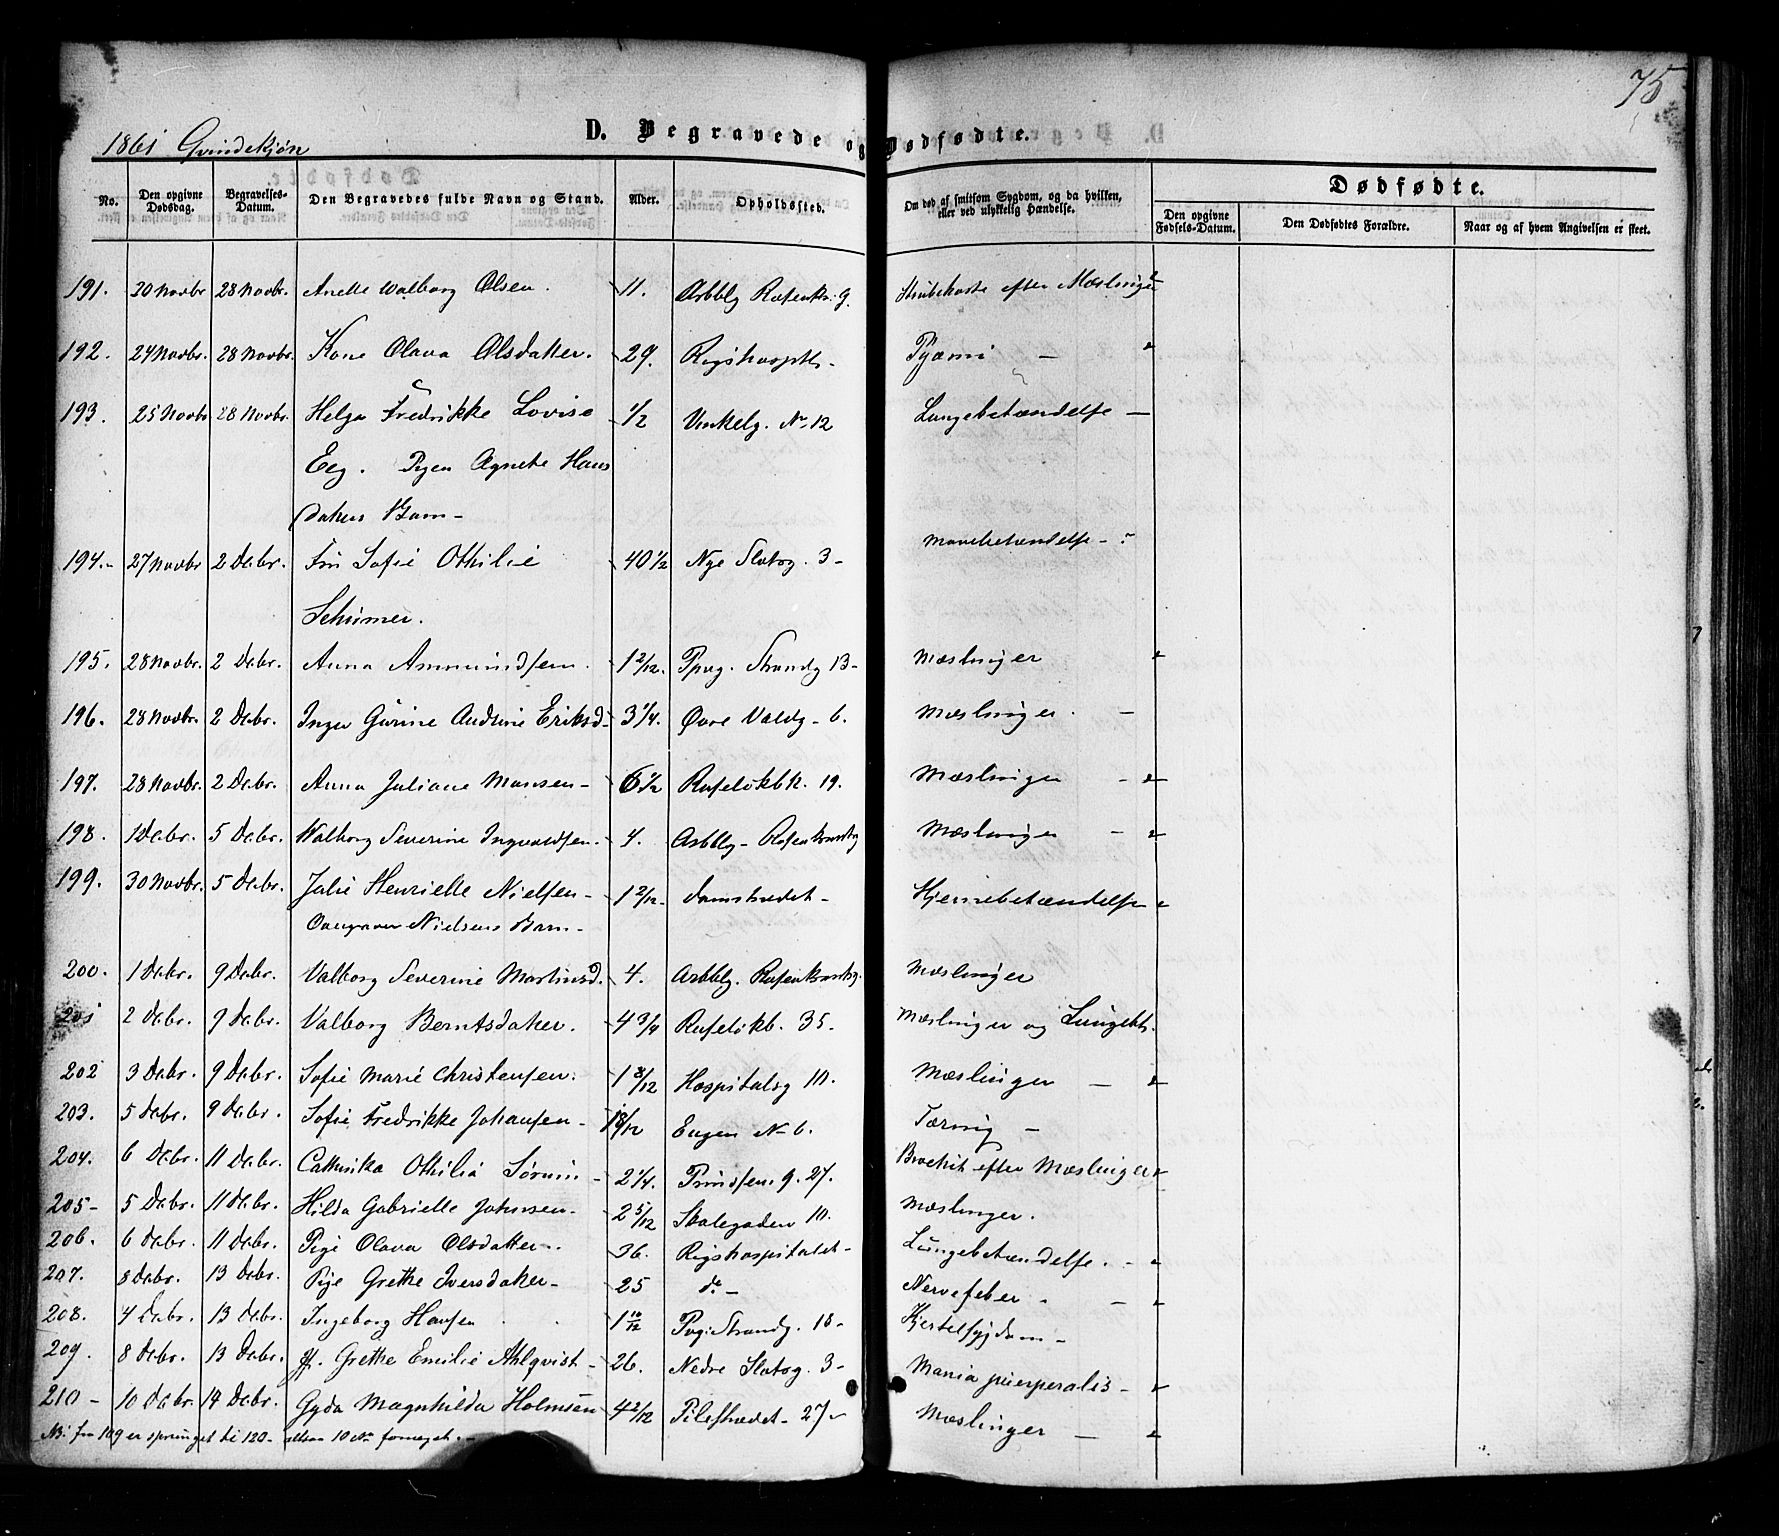 75
1861 Qvindekjøn
D. Begravede og Dødfødte.
No. Den opgivne Dødsdag. Begravelses-Datum. Den Begravedes fulde Navn og Stand. Alder. Opholdssted. Om død af smitsom Sygdom, og da hvilken, eller ved ulykkelig Hændelse. Dødfødte.
Den opgivne Fødsels-Datum. Den Dødfødtes Forældre. Naar og af hvem Angivelsen er skeet.
191. 20 Novbr 28 Novbr. Anette Walborg Olsen. 11. Arbblg Rosenkr. G. Strubehoste efter Mæslinger
192. 24 Novbr. 28 Novbr. Kone Olava Olsdatter. 29. Rigshosptl. Pyæmi -
193. 25 Novbr 28 Novbr. Helga Fredrikke Lovise 1/2 Vinkelg. No 12 Lungebetændelse -
Eeg. Pigen Agnethe Hans
datters Barn -
194. 27 Novbr 2 Debr. Fru Sofie Othilie 40 1/2 Nye Slotsg. 3 - Mavebetændelse -
Schirmer.
195. 28 Novbr. 2 Debr. Anna Ammundsen. 1 2/12. Ppvg. Strandg 13 - Mæslinger
196. 28 Novbr. 2 Debr. Inger Gurine Andrine Eriksd. 3 1/4. Øvre Voldg - 6. Mæslinger. -
197. 28 Novbr. 2 Debr. Anna Juliane Monsen - 6 1/2 Ruseløkbk. 19. Mæslinger -
198. 1 Debr. 5 Debr. Walborg Severine Ingvaldsen. 4. Arbblg - Rosenkrantzg Mæslinger -
199. 30 Novbr. 5 Debr. Julie Henriette Nielsen - 1 2/12. Damstrædet - Hjernebetændelse
Nielsens Barn -
200. 1 Debr. 9 Debr. Valborg Severine Martinsd. 4. Arbblg. Rosenkrantzg. Mæslinger
201 2 Debr. 9 Debr. Valborg Berntsdatter. 4 3/4 Ruseløkb. 35. Mæslinger og Lungebts.
202 3 Debr. 9 Debr. Sofie Marie Christensen. 1 8/12 Hospitalsg 10. Mæslinger -
203. 5 Debr. 9 Debr. Sofie Fredrikke Johansen - 18/12 Eugen No 6. Tæring -
204. 6 Debr. 11 Debr. Cathrika Othilia Sørum - 2 1/4. Prindsens g. 27. Brochit efter Mæslinger
205 - 5 Debr. 11 Debr. Hilda Gabrielle Johnsen. 2 5/12 Stalegaden 10. Mæslinger.
206. 6 Debr. 11 Debr. Pige Olava Olsdatter -. 36. Rigshospitalet - Lungebetændelse. -
207. 8 Debr. 13 Debr. Pige Grethe Iversdatter - 25 do - Nervefeber -
208. 4 Debr. 13 Debr. Ingeborg Hansen 1 10/12 Pvg. Strandg. 18 - Kjertelsygdom -
209. 8 Debr. 13 Debr. Grethe Emilie Ahlqvist - 26. Nedre Slotsg. 3 - Mania puerperalis -
210 - 10 Debr. 14 Debr. Gyda Magnhilda Holmsen 4 2/12 Pilestrædet - 27 - Mæslinger -
NB. fra 109 er sprunget til 120 - altsaa 10 No formeget. -